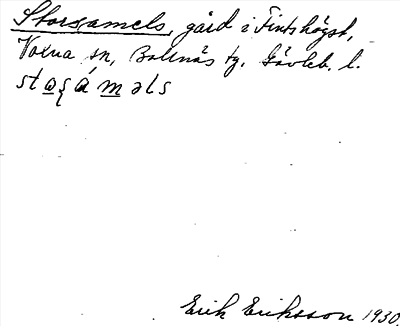 Storsamels, gård i Finnshögst,
Voxna sn, Bollnäs tg. Gävleb. l.
Erik Eriksson 1930.